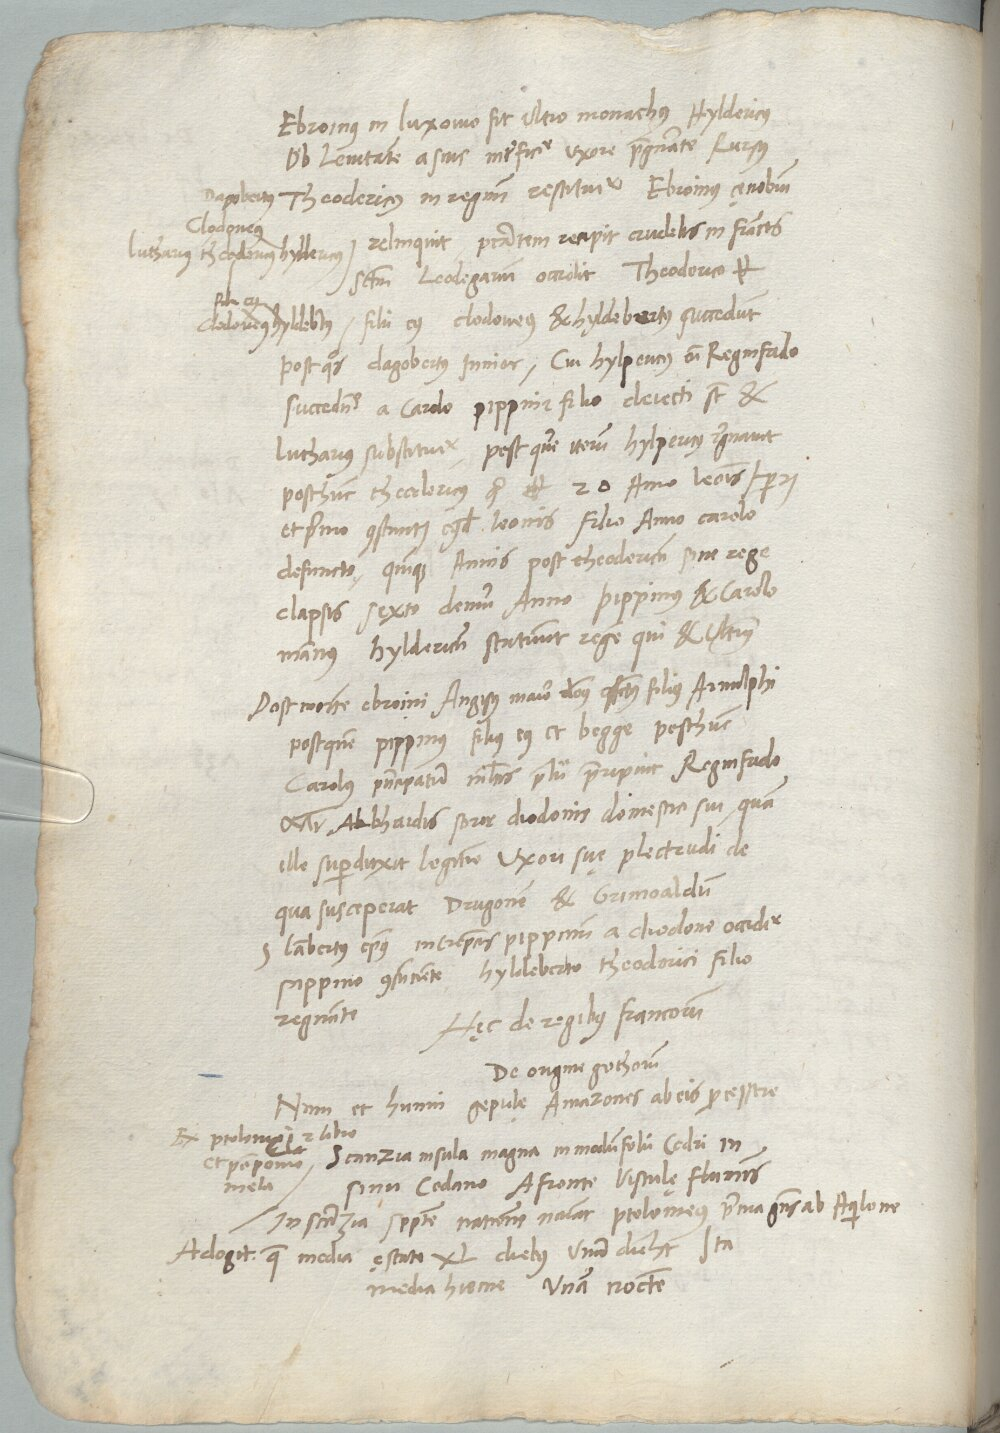 Ebroinus in luxouio fit ultro monachus Hyldericus
Ob Leuitatem a suis interficitur uxore pregnante Rursus
Dagobertus
Theodericus in regnum restituitur Ebroinus cenobium
Clodoueus
lutharius theodericus hyldericus
relinquit recipit crudelis in francos
sanctum Leodegarium occidit Theodorico
filii eius
clodoueus hyldebertus / filii eius clodoueus & hyldebertus succedunt
post quos dagobertus Iunior / Cui hylpericus Reginfrido
succedens a Carolo pippini filio deiecti sunt &
lutharius substituitur post quem iterum hylpericus regnauit
posthunc theodericus 20 Anno leonis
et primo constantini leonis filio Anno carolo
defuncto, quinque Annis post theodericum sine rege
elapsis sexto demum Anno pippinus & Carolo
mannus hyldericum statuunt regem qui & Ultimus
Post mortem ebroini Angisus filius Arnulphi
postquem pippinus filius eius et begge posthunc
Carolus principatum preripuit Reginfrido
Abhaidis soror diodonis domestici sui quam
ille superduxit legitime Uxori suę plectrudi de
qua susceperat Drugonem & Grimoaldum
S lambertus episcopus increpans pippinum a diodone occiditur
pippino consentiente hyldeberto theodorici filio
regnante
Hęc de regibus francorum
De origine gothorum
Nam et hunni gepidę Amazones ab eis processere
Ex ptolomęi 2 libro
et pomponio
mela / Scanzia insula magna in modum folii Cedri in
sinu Codano A fronte Vistulę fluminis
In scanzia septem nationes notat ptolomeus ab Aquilone
Adogit quae media ęstate XL diebus Unam diem habet Ita
media hieme Unam noctem